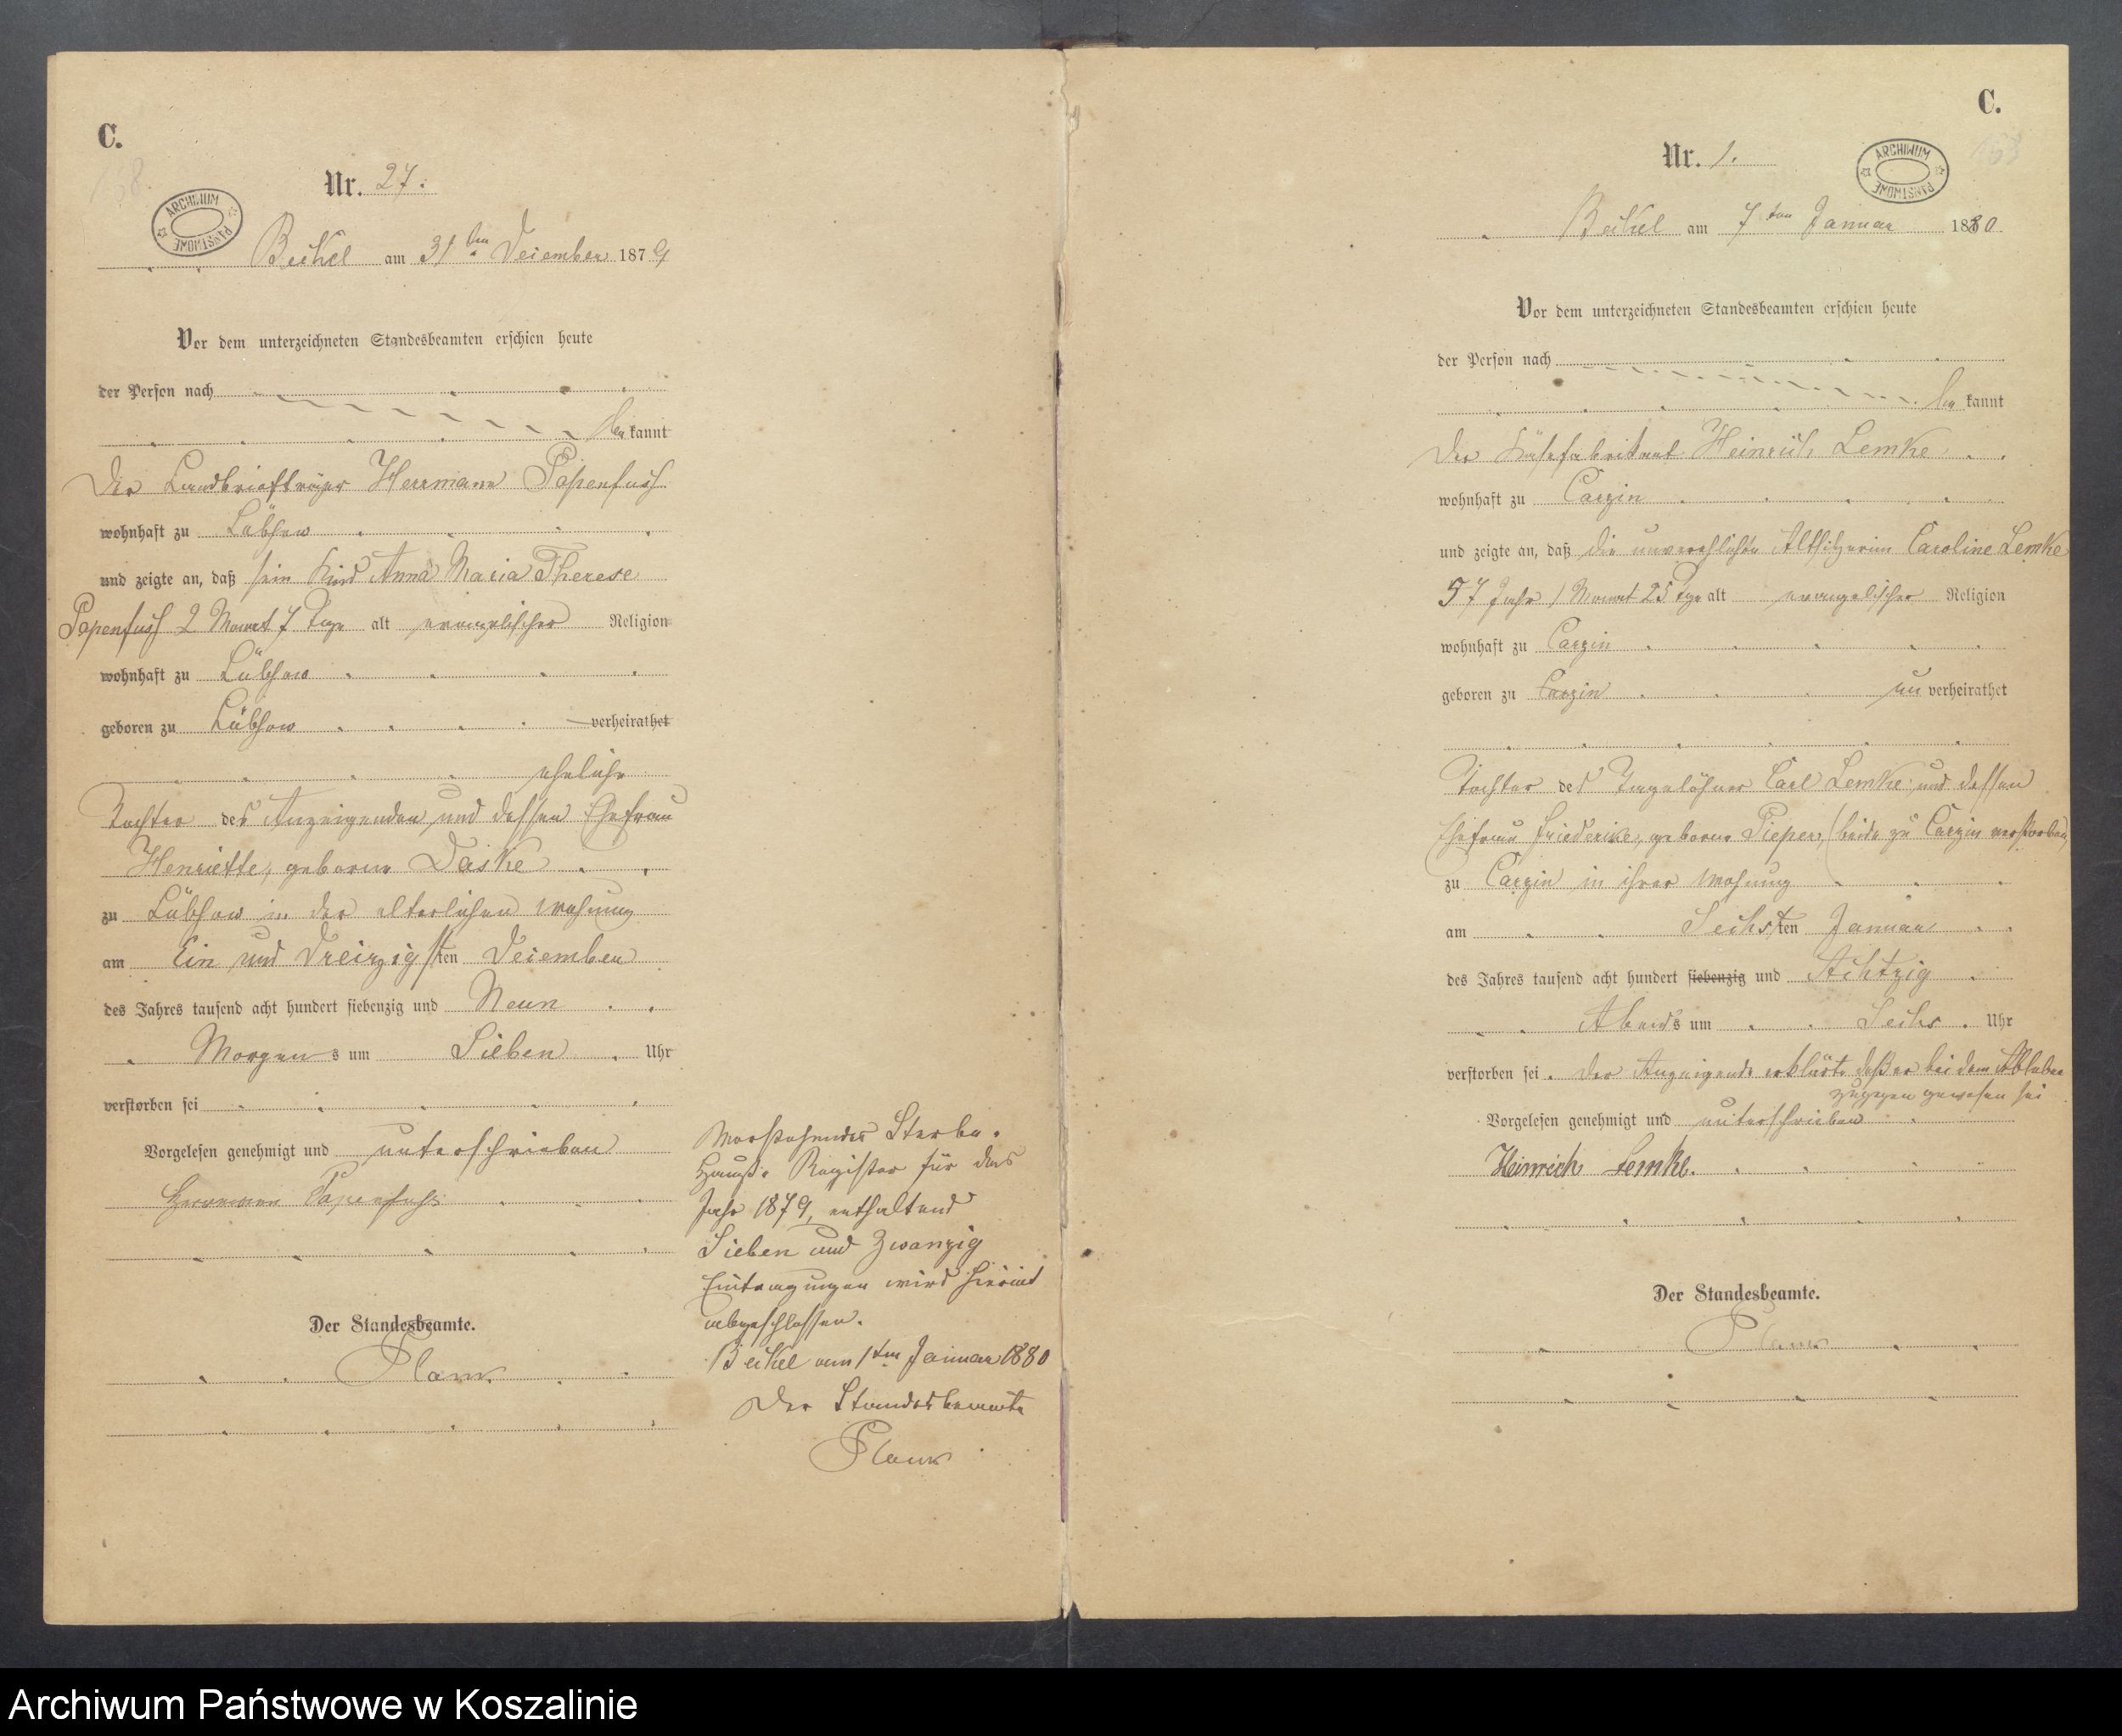 C.
Nr. 27.
ARCHIWUM PAŃSTWOWE
Beckel am 31ten Dezember 1879
Vor dem unterzeichneten Standesbeamten erschien heute
der Person nach
bekannt
Der Landbriefträger Herrmann Papenfuß
wohnhaft zu Lübzow
und zeigte an, daß sein Kind Anna Maria Therese
Papenfuß 2 Monat 7 Tage alt evangelischer Religion
wohnhaft zu Lübzow
geboren zu Lübzow verheirathet
eheliche
Tochter des Anzeigenden und dessen Ehefrau
Henriette, geborne Daske
zu Lübzow in der elterlichen Wohnung
am Ein und Dreizigsten Dezember
des Jahres tausend acht hundert siebenzig und Neun
Morgens um Sieben Uhr
verstorben sei
Vorgelesen genehmigt und unterschrieben
Herrmann Papenfuß
Der Standesbeamte.
Planck
Vorstehendes Sterbe-
Haupt-Register für das
Jahr 1879, enthaltend
Sieben und Zwanzig
Eintragungen wird hiermit
abgeschlossen.
Beckel am 1ten Januar 1880
Der Standesbeamte
Planck
C.
Nr. 1.
ARCHIWUM PAŃSTWOWE
Beckel am 7ten Januar 1880
Vor dem unterzeichneten Standesbeamten erschien heute
der Person nach
bekannt
Der Käsefabrikant Heinrich Lemke
wohnhaft zu Carzin
und zeigte an, daß die unverehlichte Altsitzerin Caroline Lemke
57 Jahr 1 Monat 25 Tage alt evangelischer Religion
wohnhaft zu Carzin
geboren zu Carzin unverheirathet
Tochter des Tagelöhner Carl Lemke und dessen
Ehefrau Friederike, geborne Pieper, (beide zu Carzin verstorben)
zu Carzin in ihrer Wohnung
am Sechsten Januar
des Jahres tausend acht hundert siebenzig und Achtzig
Abends um Sechs Uhr
verstorben sei. Der Anzeigende erklärte daß er bei dem Ableben
zugegen gewesen sei
Vorgelesen genehmigt und unterschrieben
Heinrich Lemke.
Der Standesbeamte.
Planck
Archiwum Państwowe w Koszalinie